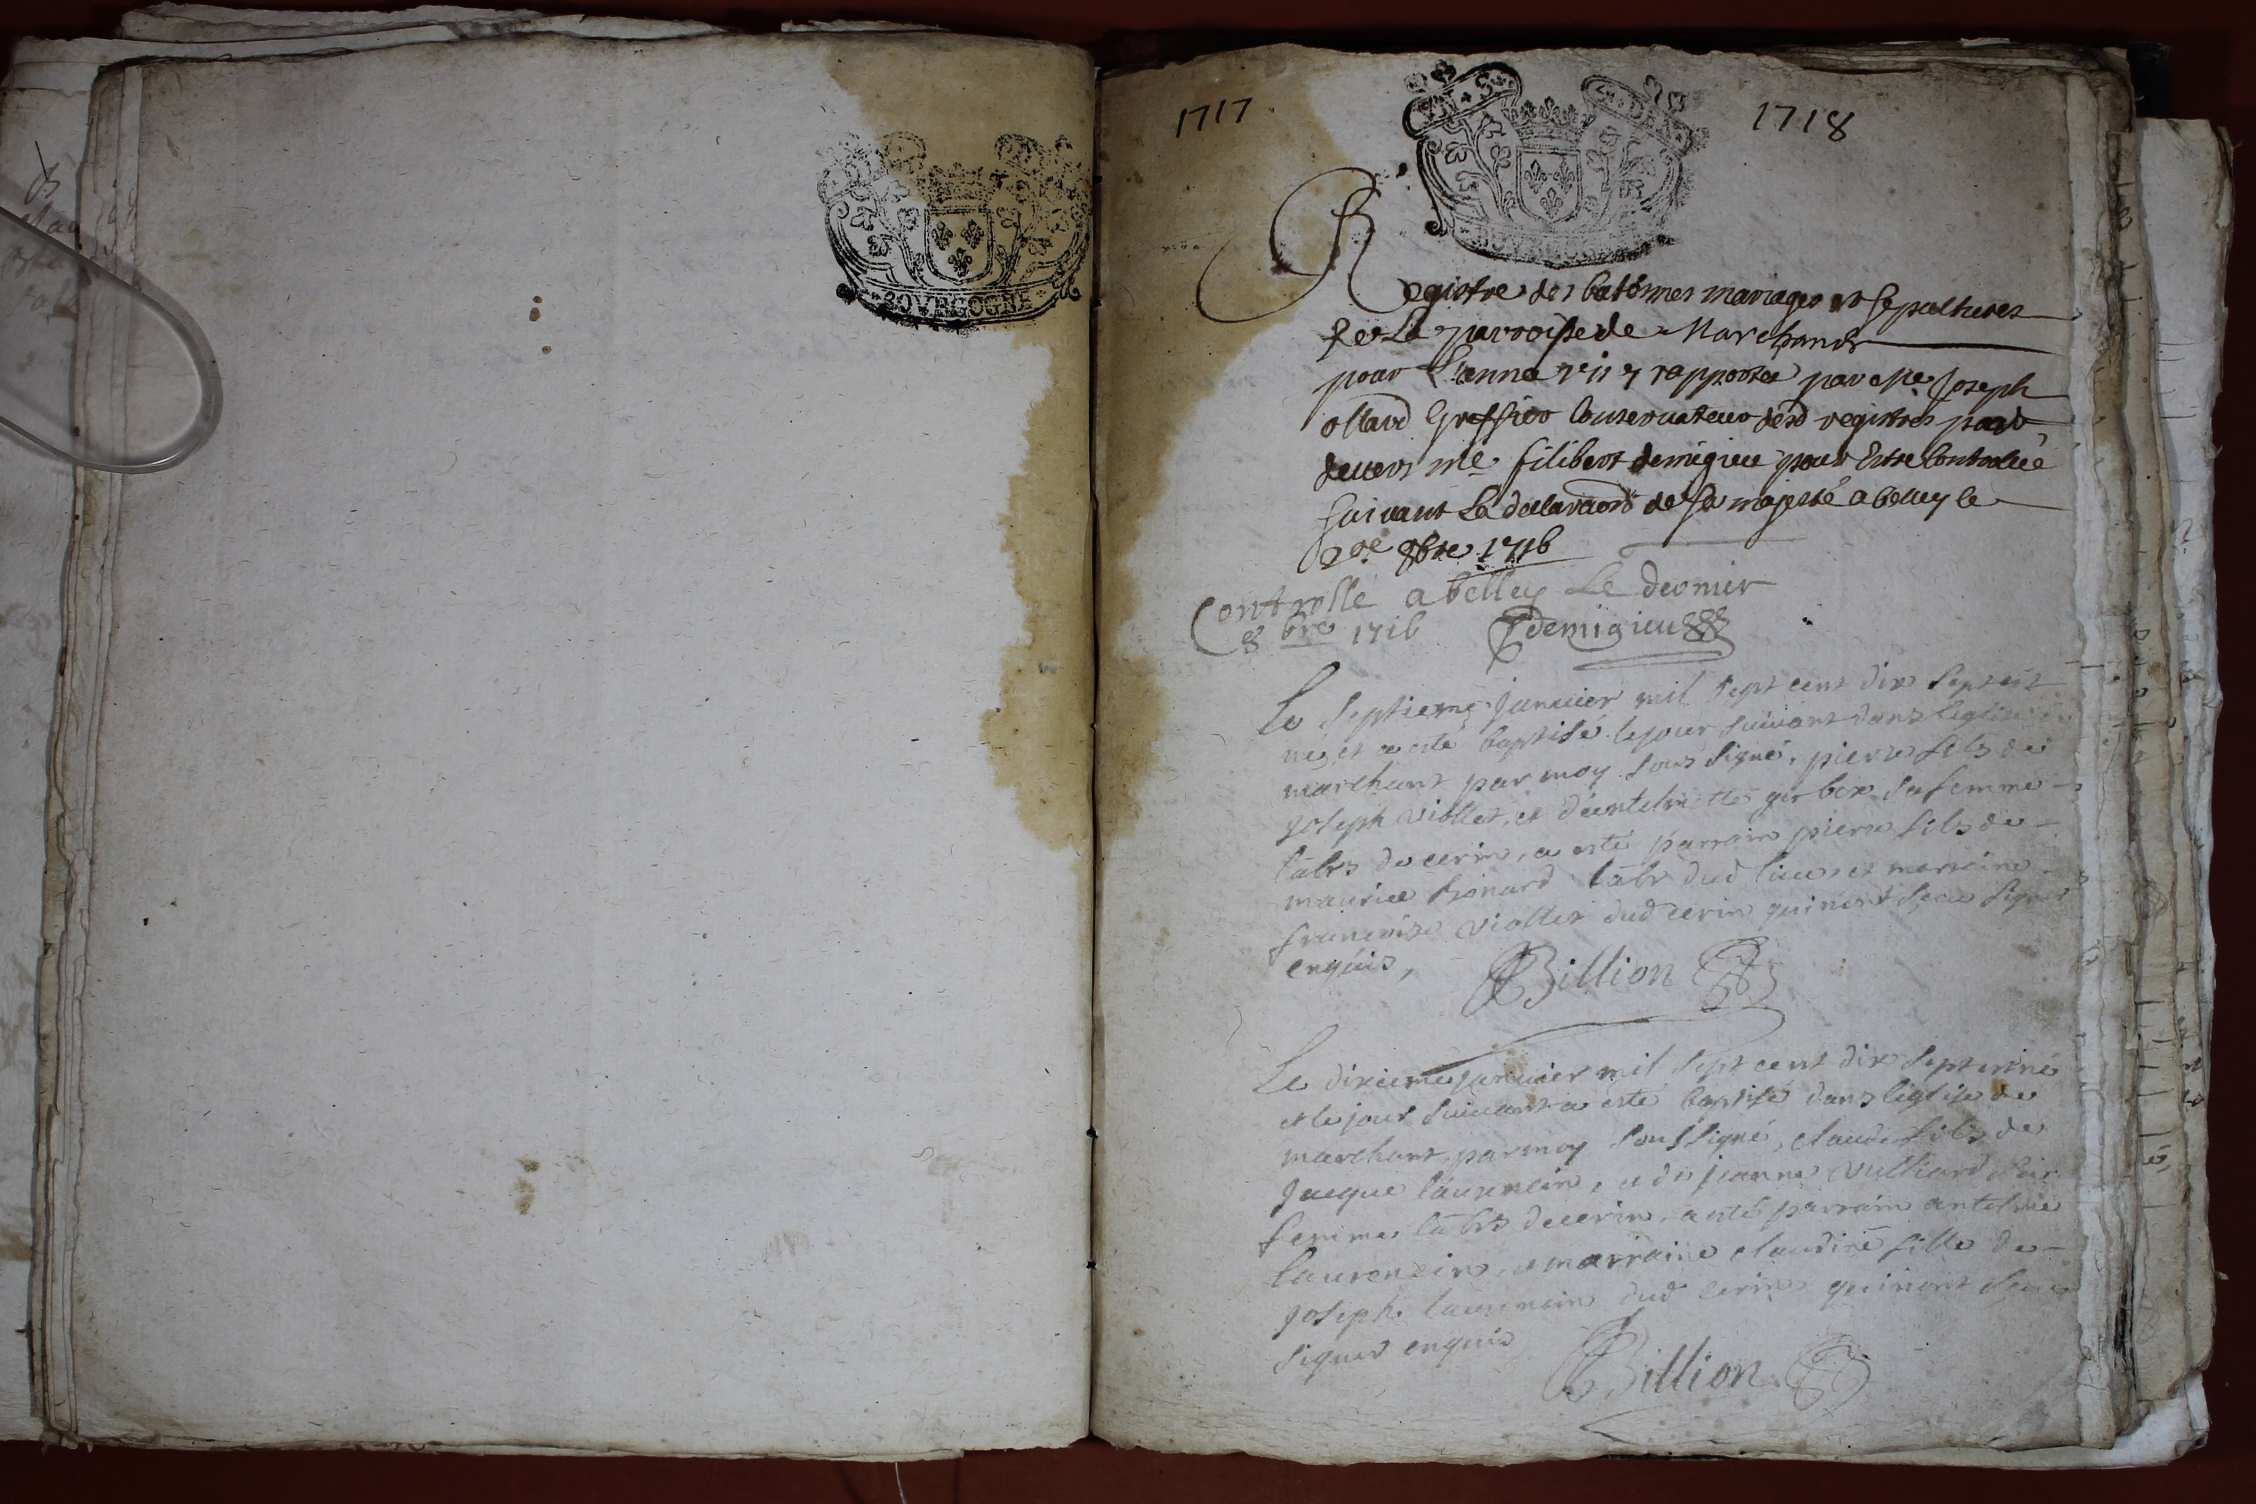 BOVRGOGNE
1717
1718
Registre des batesmes mariages et sepultures
de La parroisse de Marchamp
pour L'anne 1717 rapportée par Me Joseph
ollard Greffier Conservateur desd registres pard
devers me filibert demigieu pour Estre Controllée
suivant La declaraõn de sa majesté a belley le
8bre 1716
Controllé a belley Le dernier
8 bre 1716 demigieu
Le septieme Janvier mil sept cent dix sept est
né, et a esté baptisé le jour suivant dans leglise de
marchant par moy sous signé, pierre fils de
Joseph viollet, et d'antelmette gerbex sa femme
labrs de cerin, a esté parrain pierre fils de
maurice honard labr dud lieu, et marraine
francoise viollet dud cerin qui n'ont sceu signer
enquis,
Billion
Le dixieme janvier mil sept cent dix sept est né
et le jour suivant a esté baptisé dans leglise de
marchant, par moy soussigné, claude fils de
Jacque laurencin, et de jeanne vulliard sa
femme labrs de cerin, a esté parrain antelme
laurencin, et marraine claudine fille de
Joseph laurencin dud cerin qui n'ont sceu
signer enquis
Billion